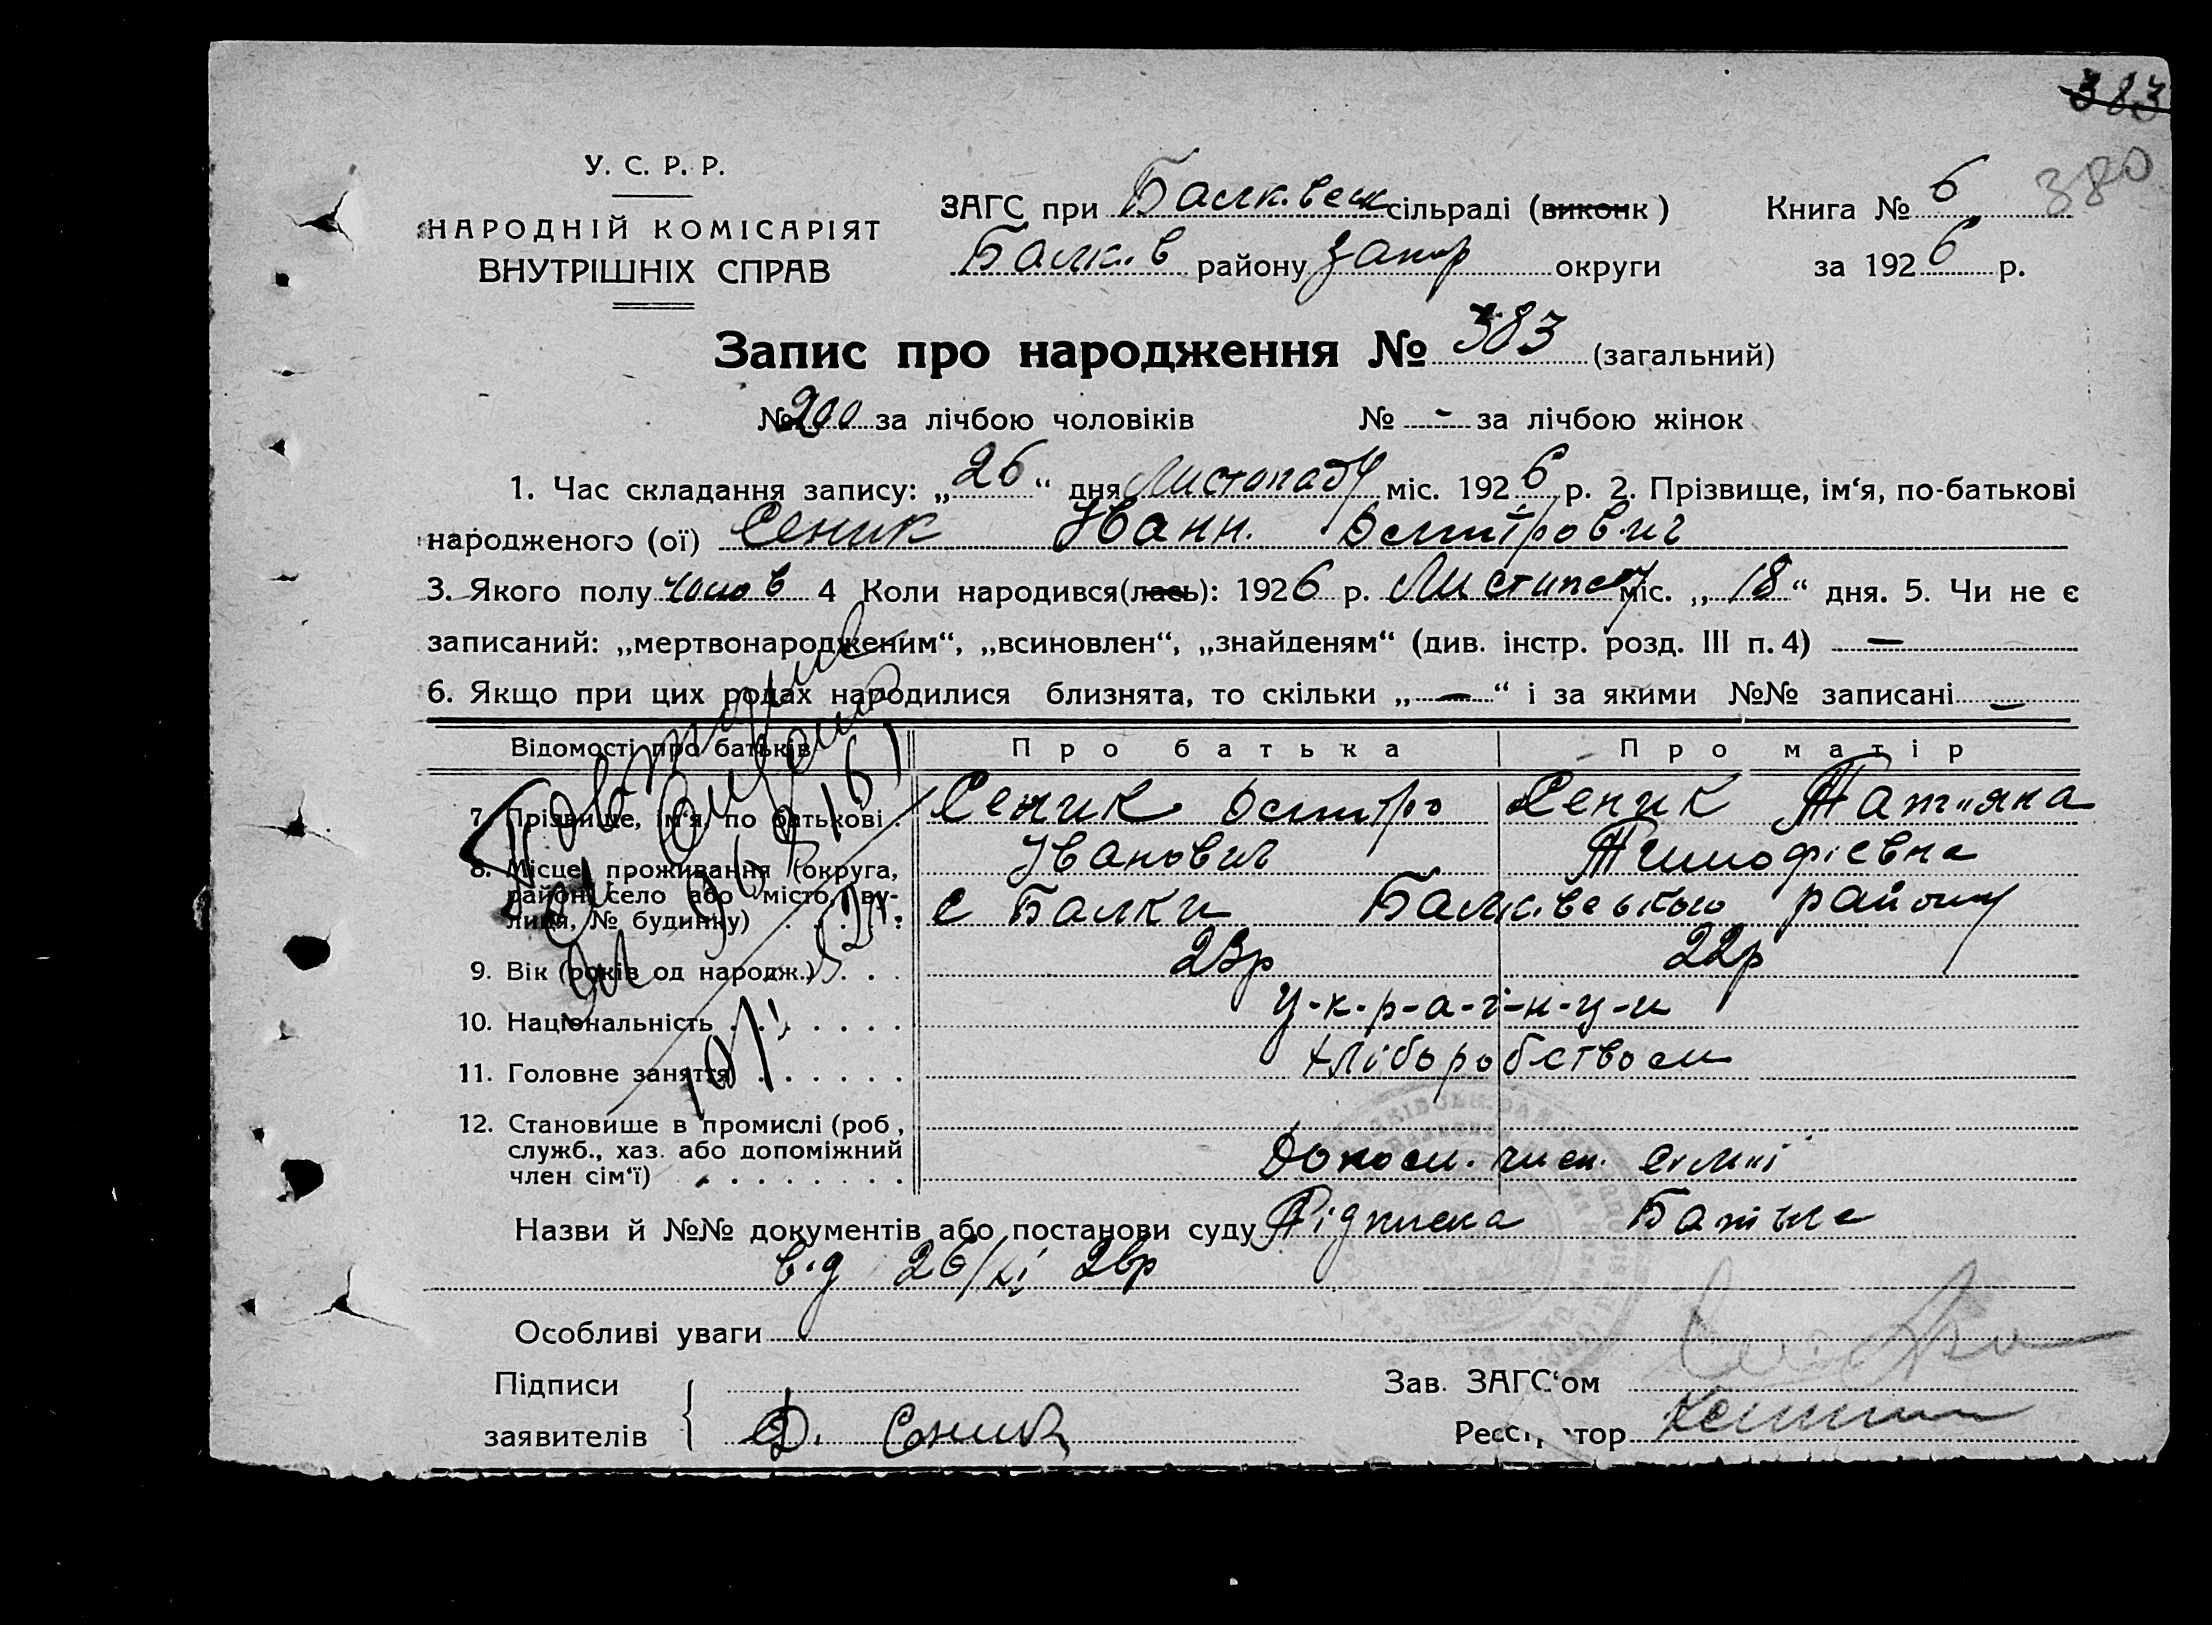 383
У. С. Р. Р.
380
НАРОДНІЙ КОМІСАРІЯТ
ВНУТРІШНІХ СПРАВ
ЗАГС при Балк.веск сільраді (виконк)
Книга № 6
Балк.в району Запор округи
за 1926 р.
Запис про народження № 383 (загальний)
№ 200 за лічбою чоловіків № - за лічбою жінок
1. Час складання запису: „26“ дня Листопаду міс. 1926 р. 2. Прізвище, ім‘я, по-батькові
народженого (ої) Сеник Іванн. Дмитрович
3. Якого полу чолов 4 Коли народився(лась): 1926 р. Листопаду міс. „18“ дня. 5. Чи не є
записаний: „мертвонародженим“, „всиновлен“, „знайденям“ (див. інстр. розд. III п. 4) —
6. Якщо при цих родах народилися близнята, то скільки „—“ і за якими №№ записані —
Відомості про батьків Про батька Про матір
7. Прізвище, ім‘я, по батькові . Сеник Дмитро Сеник Татияна
Іванович Тимофієвна
8. Місце проживання (округа,
район, село або місто, ву-
лиця, № будинку) . . . . . с Балки Балківського району
9. Вік (років од народж.) . . . 23р 22р
10. Національність . . . . . . . у-к-р-а-ї-н-ц-и
11. Головне заняття . . . . . . . хліборобством
12. Становище в промислі (роб,
служб., хаз. або допоміжний
член сім‘ї) . . . . . . . . Допом. член. семиї
Назви й №№ документів або постанови суду Підписка Батька
від 26/XI 26р
Особливі уваги
Підписи
заявителів
Д. Сеник
Зав. ЗАГС‘ом
Реєстратор